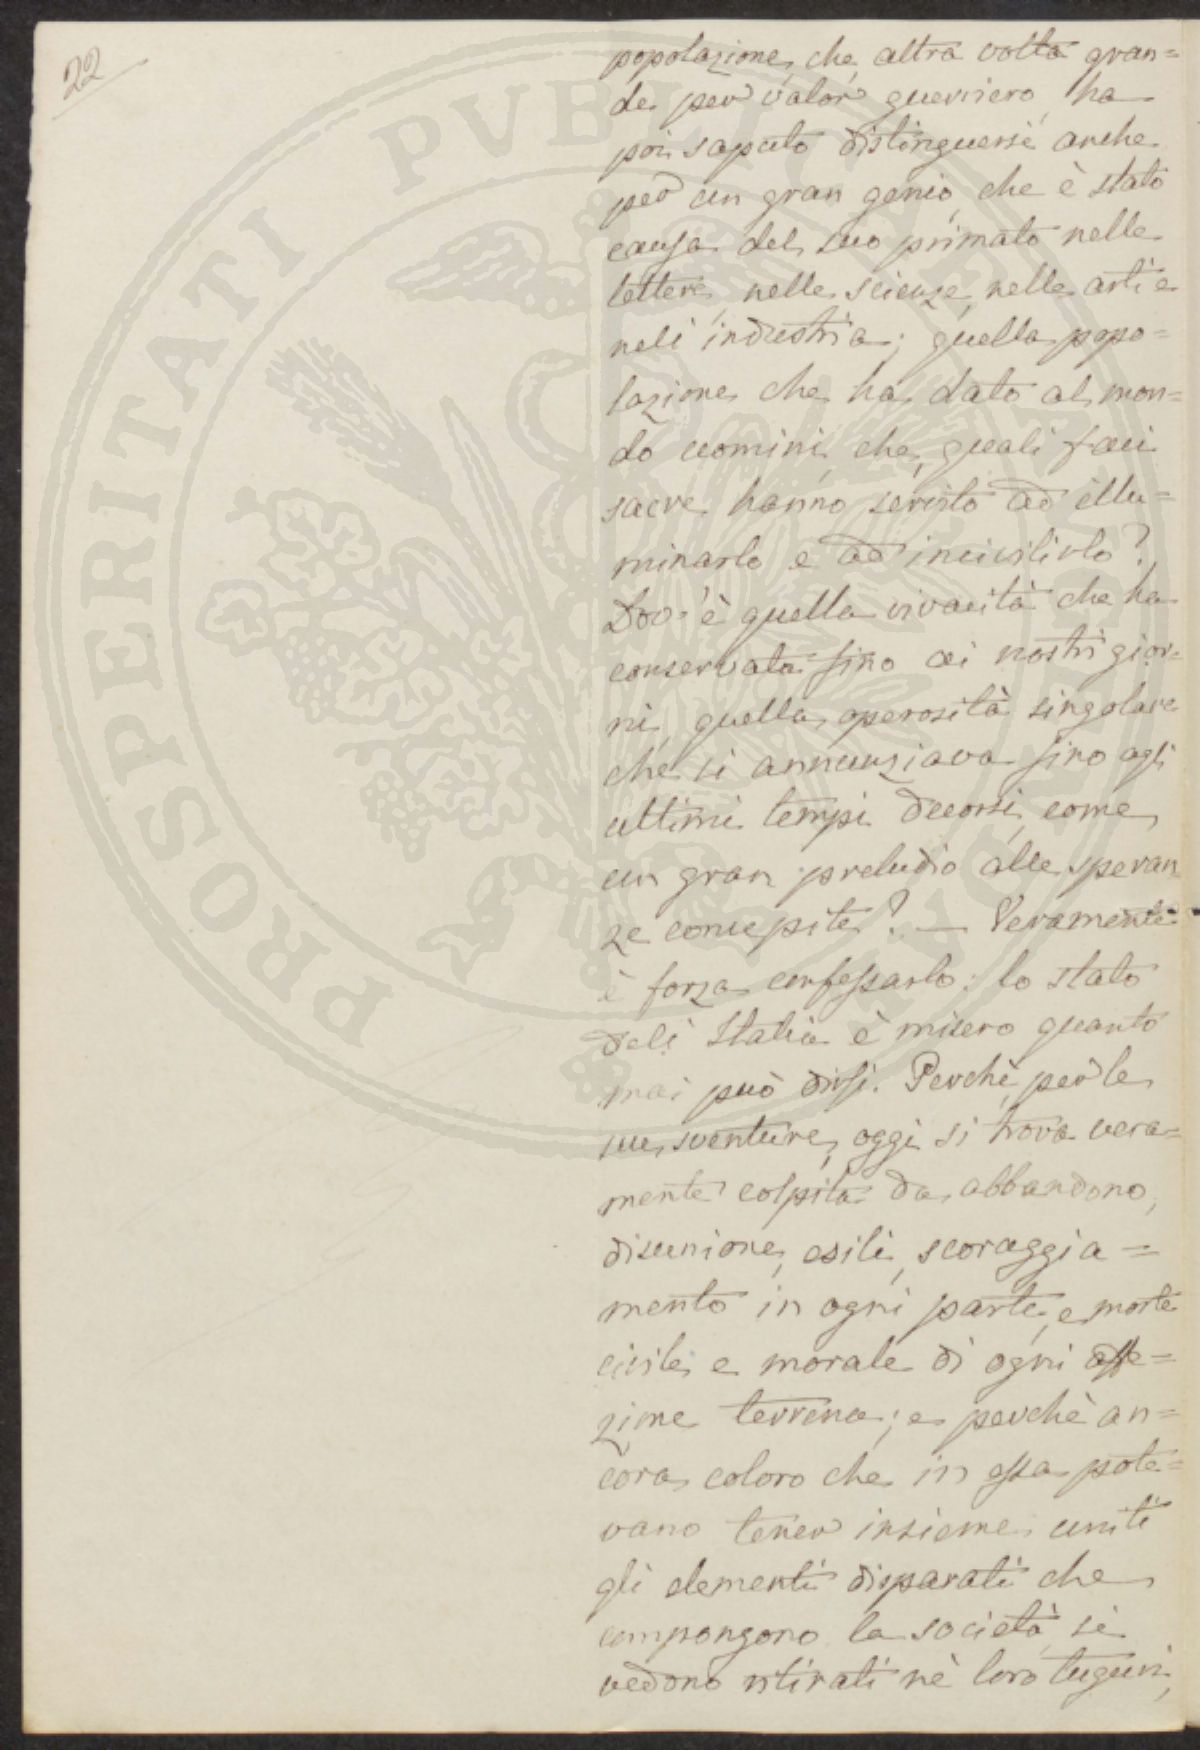 22
popolazione, che, altra volta gran=
de per valor guerriero, ha
poi saputo distinguersi anche
per un gran genio, che è stato
causa del suo primato nelle
lettere, nelle scienze, nelle arti e
nell'industria; quella popo=
lazione che ha dato al mon=
do uomini, che, quali faci
sacre hanno servito ad illu=
minarlo e ad incivilirlo?
Dov'è quella vivacità che ha
conservata fino ai nostri gior=
ni, quella operosità singolare
che si annunziava fino agli
ultimi tempi decorsi, come
un gran preludio alle speran
ze concepite? — Veramente
è forza confessarlo: lo stato
dell'Italia è misero quanto
mai può dirsi. Perchè, per le
sue sventure, oggi si trova vera=
mente colpita da abbandono,
disunione, esili, scoraggia=
mento in ogni parte, e morte
civile e morale di ogni affe=
zione terrena; e perchè an=
cora coloro che in essa pote=
vano tener insieme uniti
gli elementi disparati che
compongono la società, si
vedono ritirati nè loro tuguri,
PROSPERITATI PVBLICAE